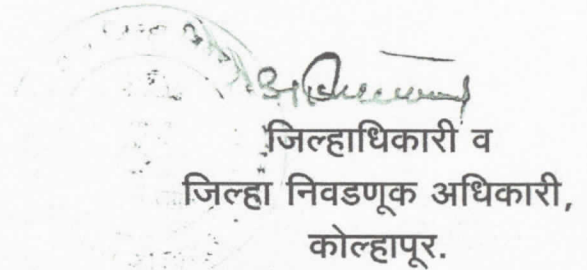 जिल्हाधिकारी व
जिल्हा निवडणूक अधिकारी,
कोल्हापूर.